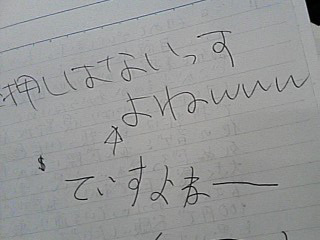 押しはないっす
よねwww
$
てぃすよねー